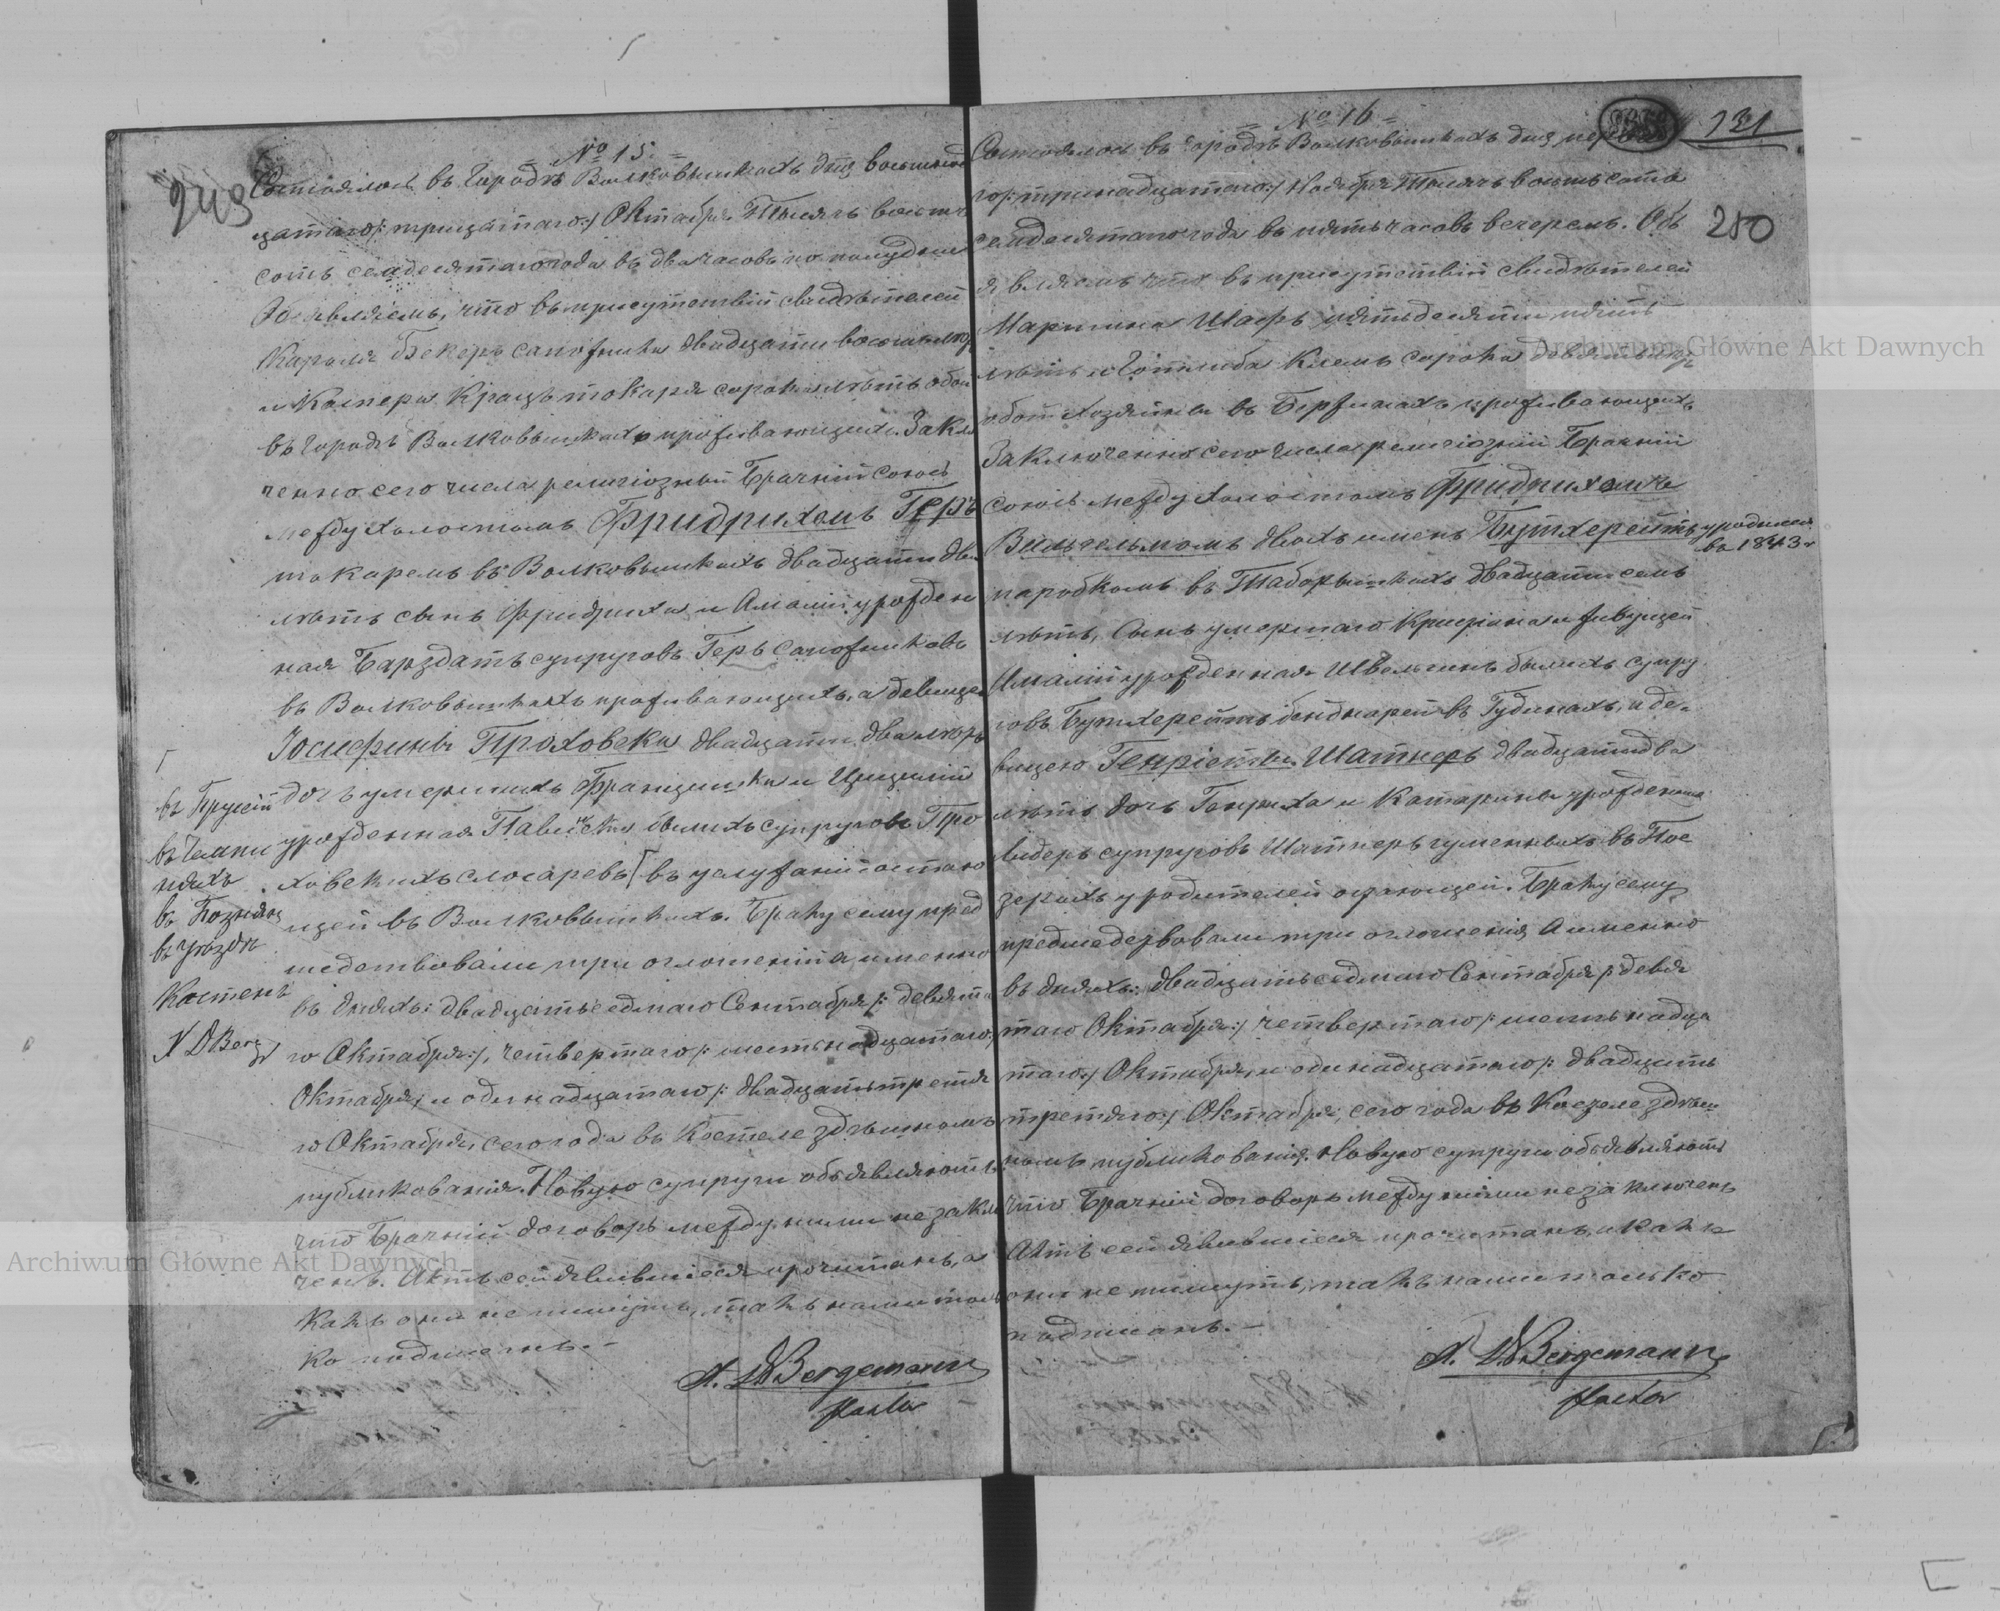 249
№ 15.
Состоялось въ Городѣ Волковышкахъ дня восьмнад
цатаго /: тридцатаго :/ Октября Тысяча восемь
сотъ семдесятаго года въ два часовъ по полудни
Объявляемъ, что въ присутствіи свидѣтелей
Кароля Бекеръ сапожника двадцати восьми лѣтъ
и Каспера Крацъ токаря сорока лѣтъ обои
въ городѣ Волковышкахъ проживающихъ. Заклю
ченно сего числа религіозный Брачній союсъ
между холостымъ Фридрихомъ Геръ
токаремъ въ Волковышкахъ двадцати два
лѣтъ сынъ Фридриха и Амаліи урожден
ная Барздатъ супруговъ Геръ сапожниковъ
въ Волковышкахъ проживающихъ, а девицею
Іосифини Проховска двадцати два лѣтъ
дочъ умершихъ Францишка и Цициліи
урожденная Павинска бывшихъ супруговъ Про
ховскихъ слосаревъ Г въ услуженіи остаю
щей въ Волковышкахъ. Браку сему пред
шедствовали три оглошенія а именно
въ дняхъ: двадцать седмаго Сентября /: девята
го Октября :/, четвертаго /: шестьнадцатаго :/
Октября, и одинадцатаго /: двадцать третя
го Октября, сего года въ Костеле здѣшномъ
публикованія. Новую супруги объявляютъ
что Брачній договоръ между ними не заклю
ченъ. Актъ сей явившіеся прочитанъ, а
какъ они не пишутъ, такъ нами толь
ко подписанъ. —
A. D Bergemann
Pastor
Г
въ Прусіи
въ Чемпи
няхъ
въ Познянц
въ Уѣздѣ
Костенъ
A D Berg
№ 16
131
250
Состоялось въ городѣ Волковышкахъ дня перва
го /: тринадцатаго :/ Ноября Тысяча восемь сотъ
семдесятаго года въ пять часовъ вечеремъ. Объ
являемъ что въ присутствіи свидѣтелей
Мартина Шафъ пятьдесяти пять
лѣтъ и Готлиба Клемъ сорока девяти лѣтъ
обои хозяйны въ Бержинахъ проживающихъ
Заключенно сего числа религіозній Брачній
союзъ между холостомъ Фридрихомъ
Вильгельмомъ двохъ именъ Бутхерейтъ уродился
въ 1843 г
паробкомъ въ Таборышкахъ двадцати семь
лѣтъ, Сынъ умершаго Крищяна и живущей
Амаліи урожденная Швельгинъ бывшихъ супру
говъ Бутхерейтъ бенднарей въ Гудинахъ, и де-
вицею Генріетти Шатнеръ двадцати два
лѣтъ дочъ Генриха и Катарини урожденная
Лидеръ супруговъ Шатнеръ гуменныхъ въ Пое
зерахъ у родителей остающей. Браку сему
предшедствовали три оглошенія А именно
въ дняхъ: двадцать седмаго Сентября /: девя
таго Октября :/ четвертаго /: шестьнадца
таго :/ Октября, и одинадцатаго /: двадцать
третяго :/ Октября, сего года въ Костеле здѣш
номъ публикованія. Новую супруги объявляютъ
что Брачній договоръ между ними не заключенъ
Актъ сей явившіеся прочитанъ, и какъ
они не пишутъ, такъ нами только
подписанъ. —
A. D Bergemann
Pastor
Archiwum Główne Akt Dawnych
Archiwum Główne Akt Dawnych